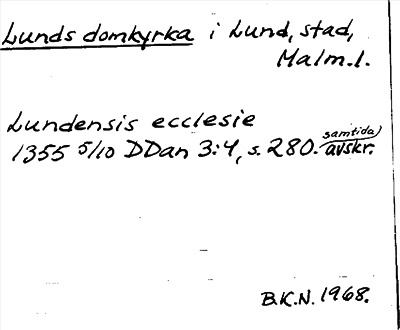 Lunds domkyrka i Lund, stad,
Malm.l.
Lundensis ecclesie
samtida
1355 5/10 DDan 3:4, s. 280. avskr.
B.K.N. 1968.